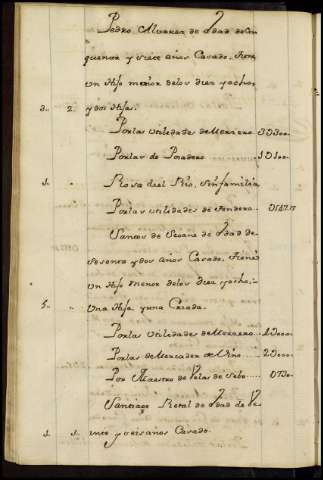 Pedro Alvarez de Edad de cin
quenta y siete años Casado. tiene
un Hijo menor de los diez y ocho
3. 2. y dos Hijas.
Por las utilidades de Mesonero. 3D300..
Por las de Posadero. 1D100..
1. Rosa del Rio. sin familia
Por las utilidades de tendera. D547.17
de Seoane de Edad de
sesenta y dos años Casado. tiene
un Hijo menor de los diez y ocho..
5. Una Hija y una Criada.
Por las utilidades de
Por las de Mercader de Vino
Por Maestro de Velas de Sebo
Santiago de Edad de Ve
1. 1. inte y seis años Casado.